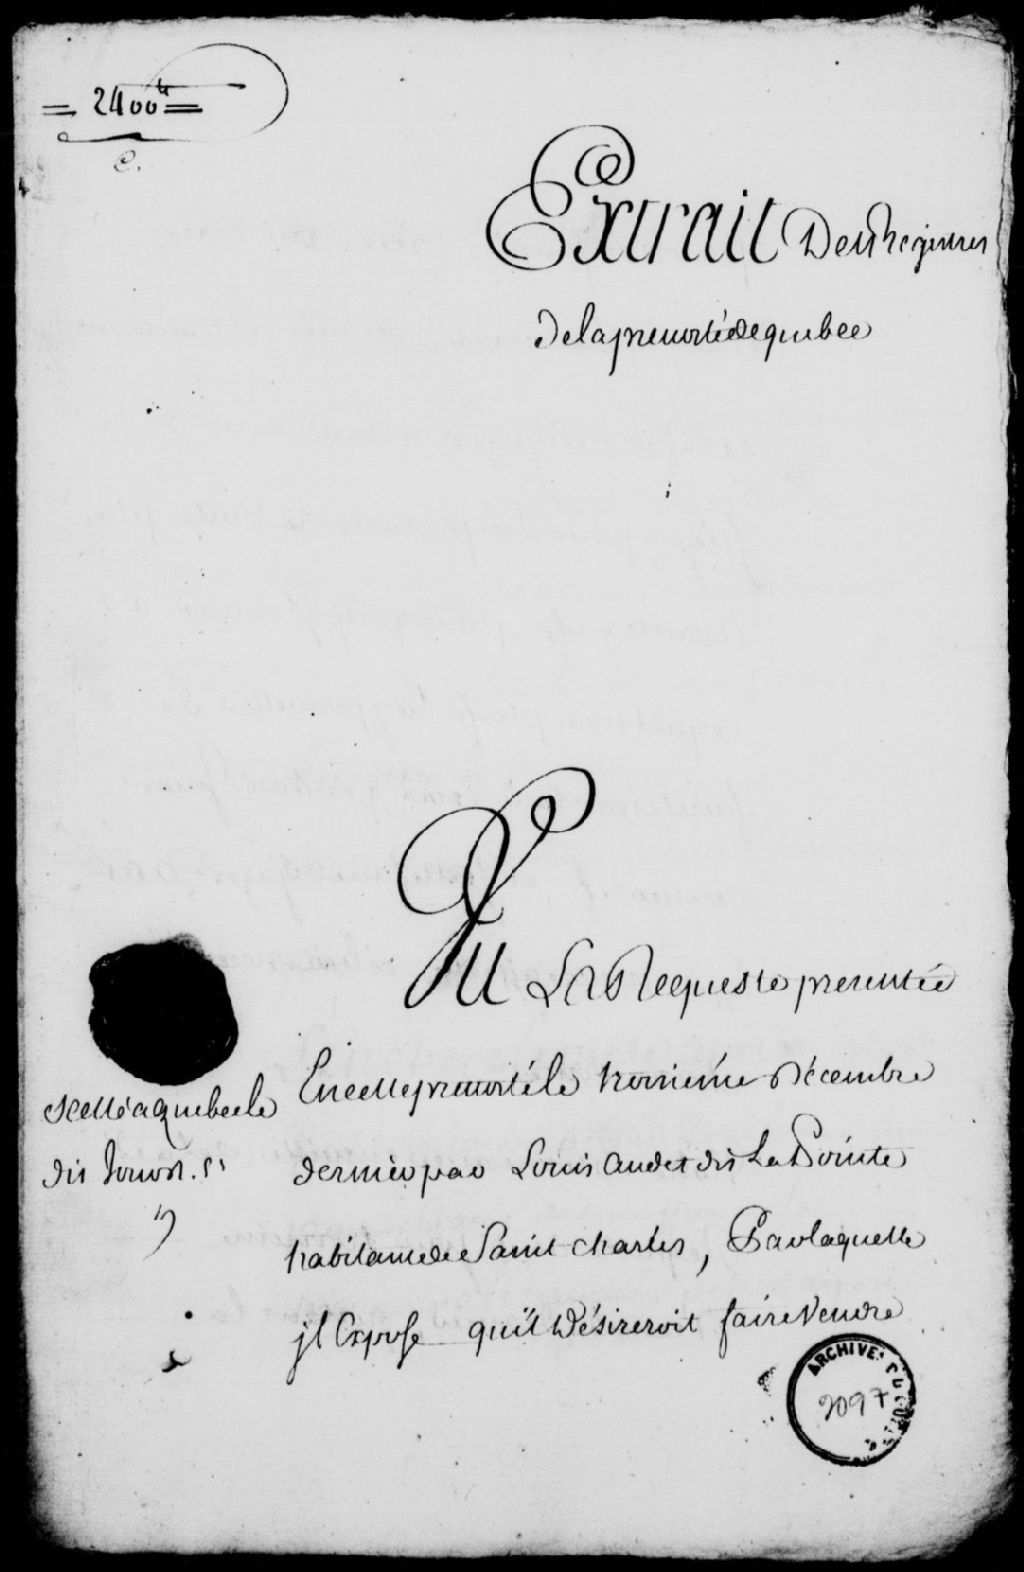 = 2400ᵗᵗ =
C.
Extrait Des Registres
De la prevosté de quebec
Vu La Requeste presentée
En cette prevosté le troisiéme Décembre
dernier par Louis Audet dit La Pointe
habitant de Saint Charles, Par laquelle
jl Expose qu'il Désireroit faire Vendre
Scellé a quebec le
dis
ARCHIVES DE QUEBEC
2097